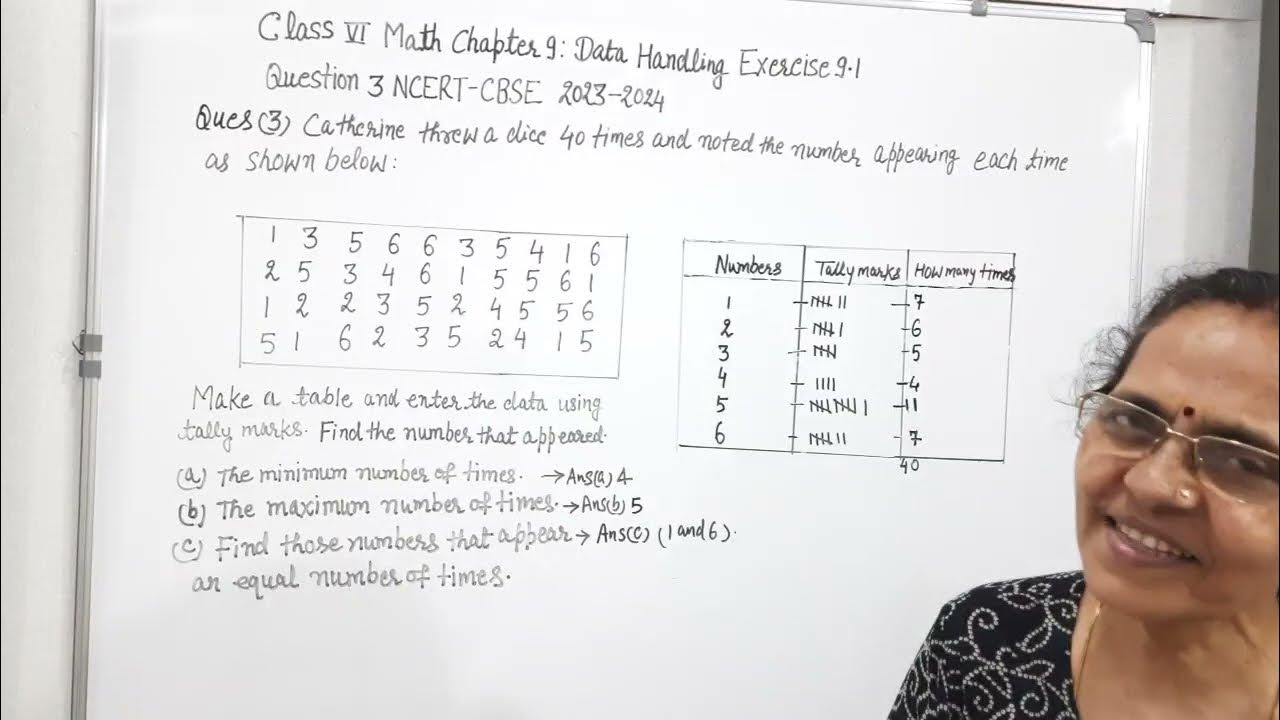 Class VI Math Chapter 9: Data Handling Exercise 9.1
Question 3 NCERT-CBSE 2023-2024
Ques (3) Catherine threw a dice 40 times and noted the number appearing each time
as shown below:
1 3 5 6 6 3 5 4 1 6
2 5 3 4 6 1 5 5 6 1
1 2 2 3 5 2 4 5 5 6
5 1 6 2 3 5 2 4 1 5
Make a table and enter the data using
tally marks. Find the number that appeared.
(a) The minimum number of times. → Ans(a) 4
(b) The maximum number of times. → Ans(b) 5
(c) Find those numbers that appear → Ans(c) (1 and 6).
an equal number of times.
Numbers Tally marks How many times
1 𝍸|| 7
2 𝍸| 6
3 𝍸 5
4 |||| 4
5 𝍸𝍸| 11
6 𝍸|| 7
40